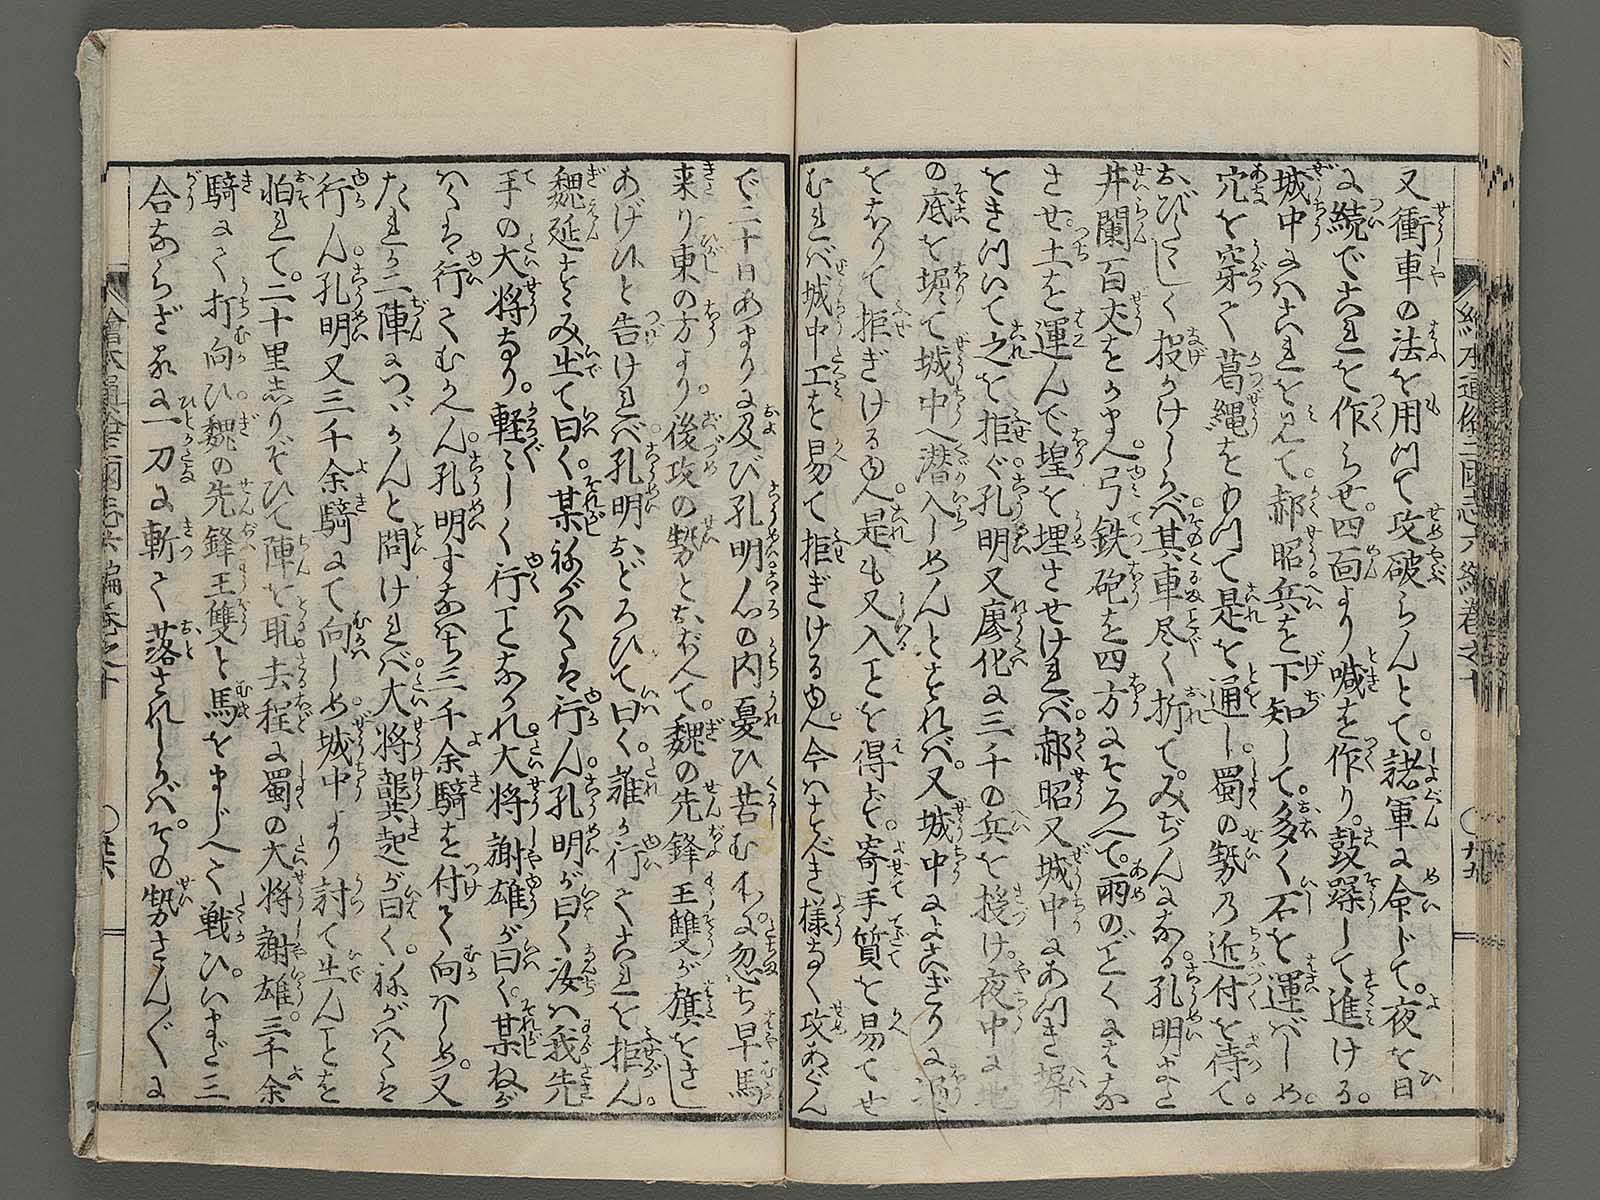 又衝車の法を用ひて攻破らんとて。諸軍に命じて。夜を日
に続でこれを作らせ四面より喊を作り。鼓躁して進ける。
城中にハこれを見て。郝昭兵を下知して。多く石を運ばしめ。
穴を穿て葛縄をもつて是を通し。蜀の勢の近付を待て。
おびたゝしく投かけしかバ其車尽く折てみぢんになる孔明また
井闌百丈をかまへ。弓鉄砲を四方にそろへて。雨のごとくに
させ。土を運んで堭を埋させけれバ。郝昭又城中に
をきづいて之を拒ぐ孔明又廖化に三千の兵を授け。夜中に地
の底を堀て城中へ潜入しめんとすれバ。又城中によこぎりに
をほりて拒ぎけるゆへ。是も又入ことを得ず。寄手質を易てせ
むれバ城中工を易て拒ぎけるゆへ。今ハすべき様なく攻あぐん
で二十日あまりに及び孔明心の内憂ひ苦む処に。忽ち早馬
来り東の方より。後攻の勢とおぼへて。魏の先鋒王雙が旗をさし
あげ候と告けれバ孔明、おどろひて曰く。誰か行てこれを拒ん。
魏延すゝみ出て曰く某ねがハくは行ん孔明が曰く汝ハ我先
手の大将なり。軽〻しく行ことなかれ大将謝雄が曰く。某ねが
ハくは行てむかへん。孔明すなハち三千余騎を付て向ハしめ。又
たれか二陣につゞかんと問けれバ大将龔起が曰く。ねがハくは
行ん。孔明又三千余騎にて向しめ。城中より討て出んことを
怕れて。二十里しりぞひて陣を取。去程に蜀の大将謝雄。三千余
騎にて打向ひ。魏の先鋒王雙と馬をまじへて戦ひ。いまだ三
合ならざるに一刀に斬て落されしかバ。その勢さん〲に